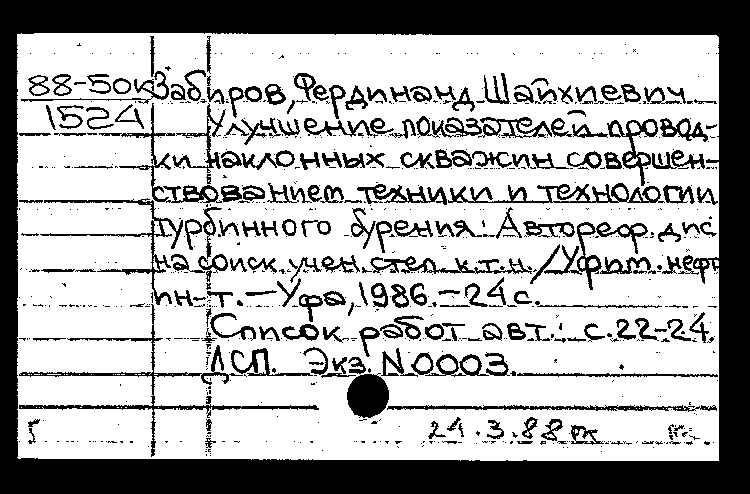 88-50к Забиров, Фердинанд Шайхиевич
1524 Улучшение показателей провод-
ки наклонных скважин совершен-
ствованием техники и технологии
турбинного бурения: Автореф. дис
на соиск. учен. степ. к.т.н. / Уфим. нефт
ин-т. – Уфа, 1986. – 24 с.
Список работ авт.: с. 22-24.
ДСП. Экз. N 0003.
24.3.88